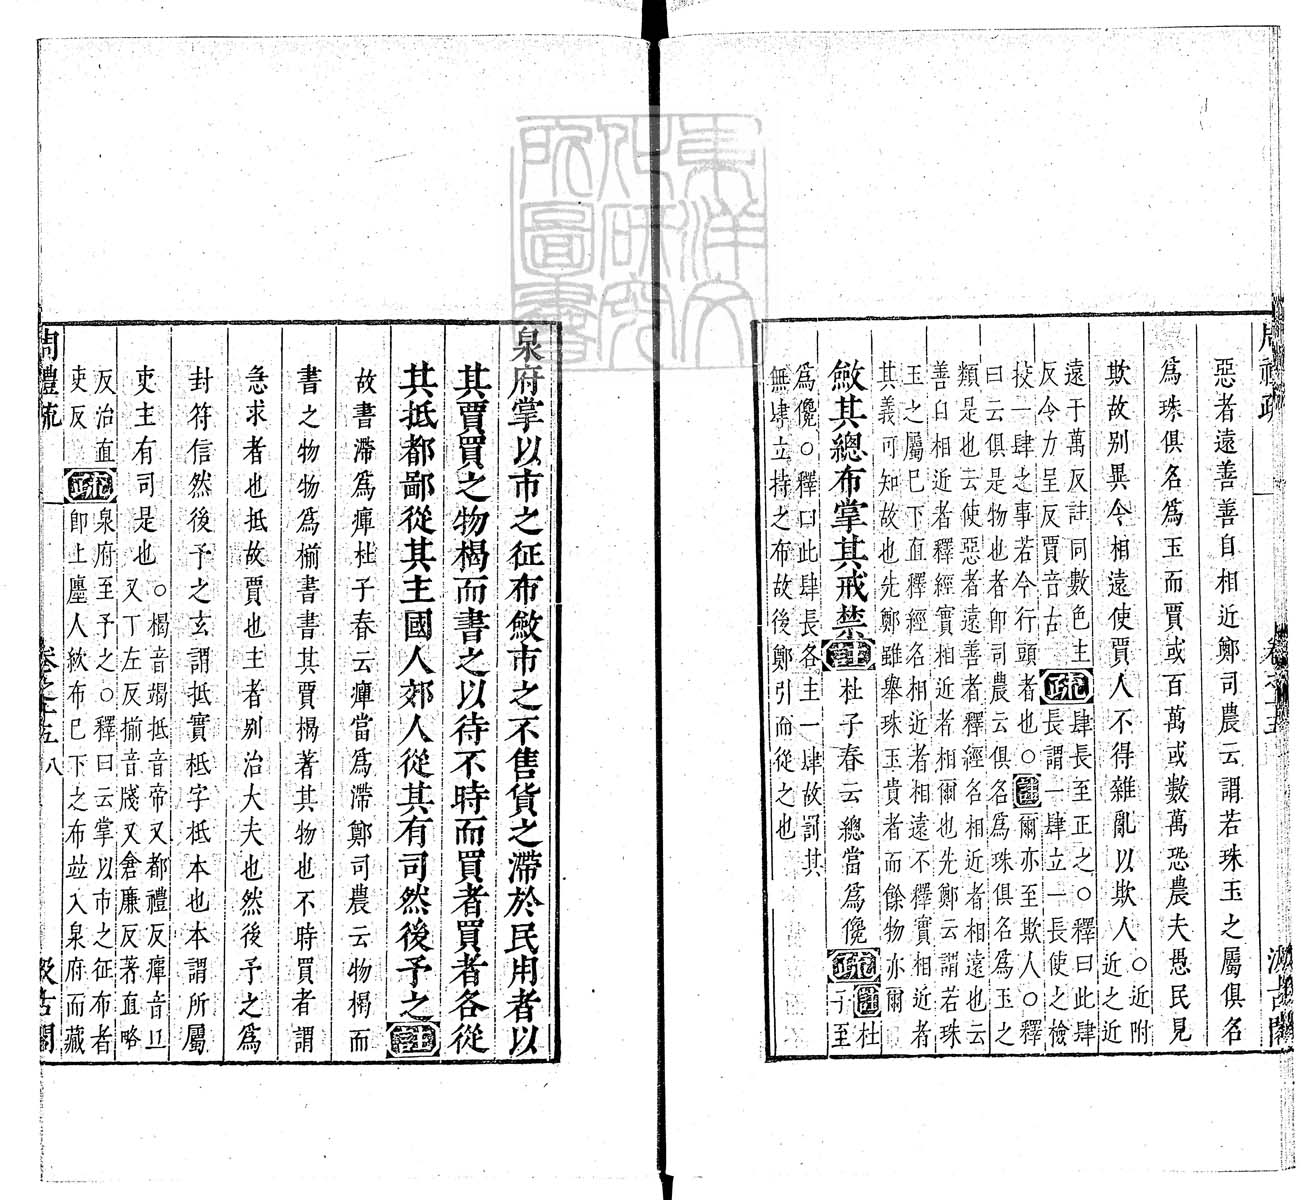 周禮疏 卷之十五 汲古閣
惡者遠善善自相近鄭司農云謂若珠玉之屬俱名
爲珠俱名爲玉而賈或百萬或數萬恐農夫愚民見
欺故别異令相遠使賈人不得雜亂以欺人○近附
近之近
遠于萬反註同數色主
反令力呈反賈音古
疏肆長至正之○釋曰此肆
長謂一肆立一長使之檢
挍一肆之事若今行頭者也○註爾亦至欺人○釋
曰云俱是物也者卽司農云俱名爲珠俱名爲玉之
類是也云使惡者遠善者釋經名相近者相遠也云
善自相近者釋經實相近者相爾也先鄭云謂若珠
玉之屬巳下直釋經名相近者相遠不釋實相近者
其義可知故也先鄭雖舉珠玉貴者而餘物亦爾
斂其總布掌其戒禁註杜子春云總當爲儳疏註杜
子至
爲儳○釋曰此肆長各主一肆故罰其
無肆立持之布故後鄭引而從之也
泉府掌以市之征布斂市之不售貨之滯於民用者以
其賈買之物楬而書之以待不時而買者買者各從
其抵都鄙從其主國人郊人從其有司然後予之註
故書滯爲癉杜子春云癉當爲滯鄭司農云物楬而
書之物物爲揃書書其賈楬著其物也不時買者謂
急求者也抵故賈也主者别治大夫也然後予之爲
封符信然後予之玄謂抵實柢字柢本也本謂所屬
吏主有司是也○楬音竭抵音帝又都禮反癉音旦
又丁左反揃音牋又倉廉反著直略
反治直
吏反
疏泉府至予之○釋曰云掌以市之征布者
卽上廛人欴布巳下之布並入泉府而藏
周禮疏 卷之十五 八 汲古閣